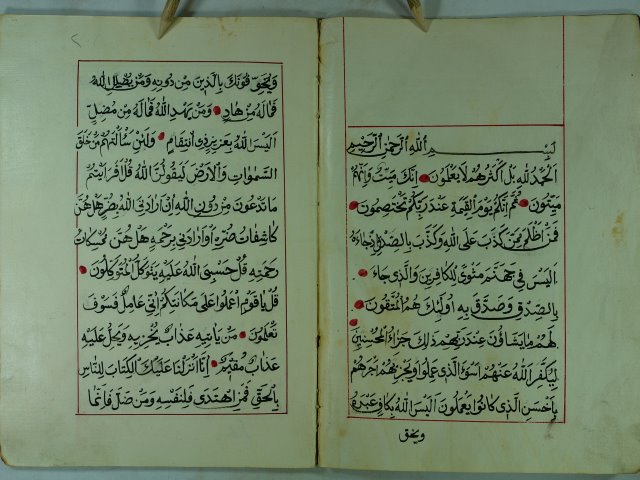 بسم الله الرحمن الرحيم
الحمد لله بل اكثرهم لا يعلمون انك ميت وانهم
ميتون ثم انكم يوم القيمة عند ربكم تختصمون
فمن اظلم ممن كذب على الله وكذب بالصدق اذ جاءه
اليس في جهنم مثوى للكافرين والذي جاء
بالصدق وصدق به اولئك هم المتقون
لهم ما يشاؤن عند ربهم ذلك جزاء المحسنين
ليكفر الله عنهم اسوء الذي عملوا ويجزيهم اجرهم
باحسن الذي كانوا يعملون اليس الله بكاف عبده
ويخو
ويخوفونك بالذين من دونه ومن يضلل الله
فما له من هاد ومن يهد الله فما له من مضل
اليس الله بعزيز ذي انتقام ولئن سالتهم من خلق
السموات والارض ليقولن الله قل افرايتم
ما تدعون من دون الله ان ارادني الله بضر هل هن
كاشفات ضره او ارادني برحمة هل هن ممسكات
رحمته قل حسبي الله عليه يتوكل المتوكلون
قل يا قوم اعملوا على مكانتكم اني عامل فسوف
تعلمون من ياتيه عذاب يخزيه ويحل عليه
عذاب مقيم انا انزلنا عليك الكتاب للناس
بالحق فمن اهتدى فلنفسه ومن ضل فانما